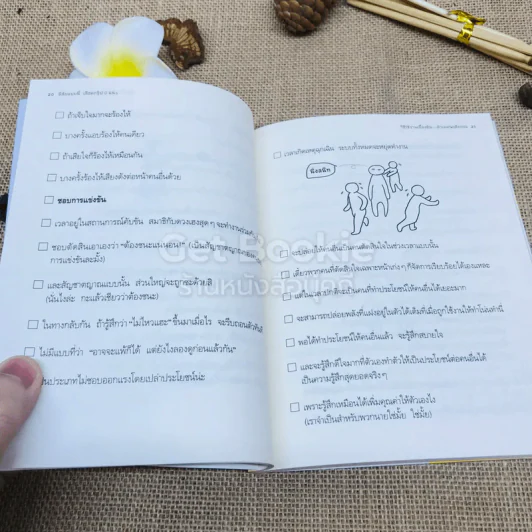 ถ้าเจ็บใจมากจะร้องไห้
บางครั้งแอบร้องไห้คนเดียว
ถ้าเสียใจก็ร้องไห้เหมือนกัน
บางครั้งร้องไห้เสียงดังต่อหน้าคนอื่นด้วย
ชอบการแข่งขัน
เวลาอยู่ในสถานการณ์คับขัน สมาธิกับดวงเฮงสุดๆ จะทำงานร่วมกัน
ชอบตัดสินเอาเองว่า "ต้องชนะแน่นอน!" (เป็นสัญชาตญาณ
การแข่งขันละมั้ง)
และสัญชาตญาณแบบนั้น ส่วนใหญ่จะถูกซะด้วยสิ
(นั่นไงล่ะ กะแล้วเชียวว่าต้องชนะ)
ในทางกลับกัน ถ้ารู้สึกว่า "ไม่ไหวแฮะ" ขึ้นมาเมื่อไร จะรีบถอนตัวทันที
ไม่มีแบบที่ว่า "อาจจะแพ้ก็ได้ แต่ยังไงลองดูก่อนแล้วกัน"
ประเภทไม่ชอบออกแรงโดยเปล่าประโยชน์น่ะ
เวลาเกิดเหตุฉุกเฉิน ระบบทั้งหมดจะหยุดทำงาน
ผึงสนิท
จะปล่อยให้คนอื่นเป็นคนตัดสินใจในช่วงเวลาแบบนั้น
เดี๋ยวพวกคนที่ตัดสินใจเฉพาะหน้าเก่งๆ ก็จัดการเรียบร้อยได้เองแหละ
แต่ในเวลาปกติจะเป็นคนที่ทำประโยชน์ให้คนอื่นได้เยอะมาก
จะสามารถปล่อยพลังที่แฝงอยู่ในตัวได้เต็มที่เมื่อถูกใช้งานให้ทำโน่นทำนี่
พอได้ทำประโยชน์ให้คนอื่นแล้ว จะรู้สึกสบายใจ
และจะรู้สึกดีใจมากที่ตัวเองทำตัวให้เป็นประโยชน์ต่อคนอื่นได้
เป็นความรู้สึกสุดยอดจริงๆ
เพราะรู้สึกเหมือนได้เพิ่มคุณค่าให้ตัวเองไง
(เราจำเป็นสำหรับพวกนายใช่มั้ย ใช่มั้ย)
Get Bookie
ร้านหนังสือบุ๊คกี้